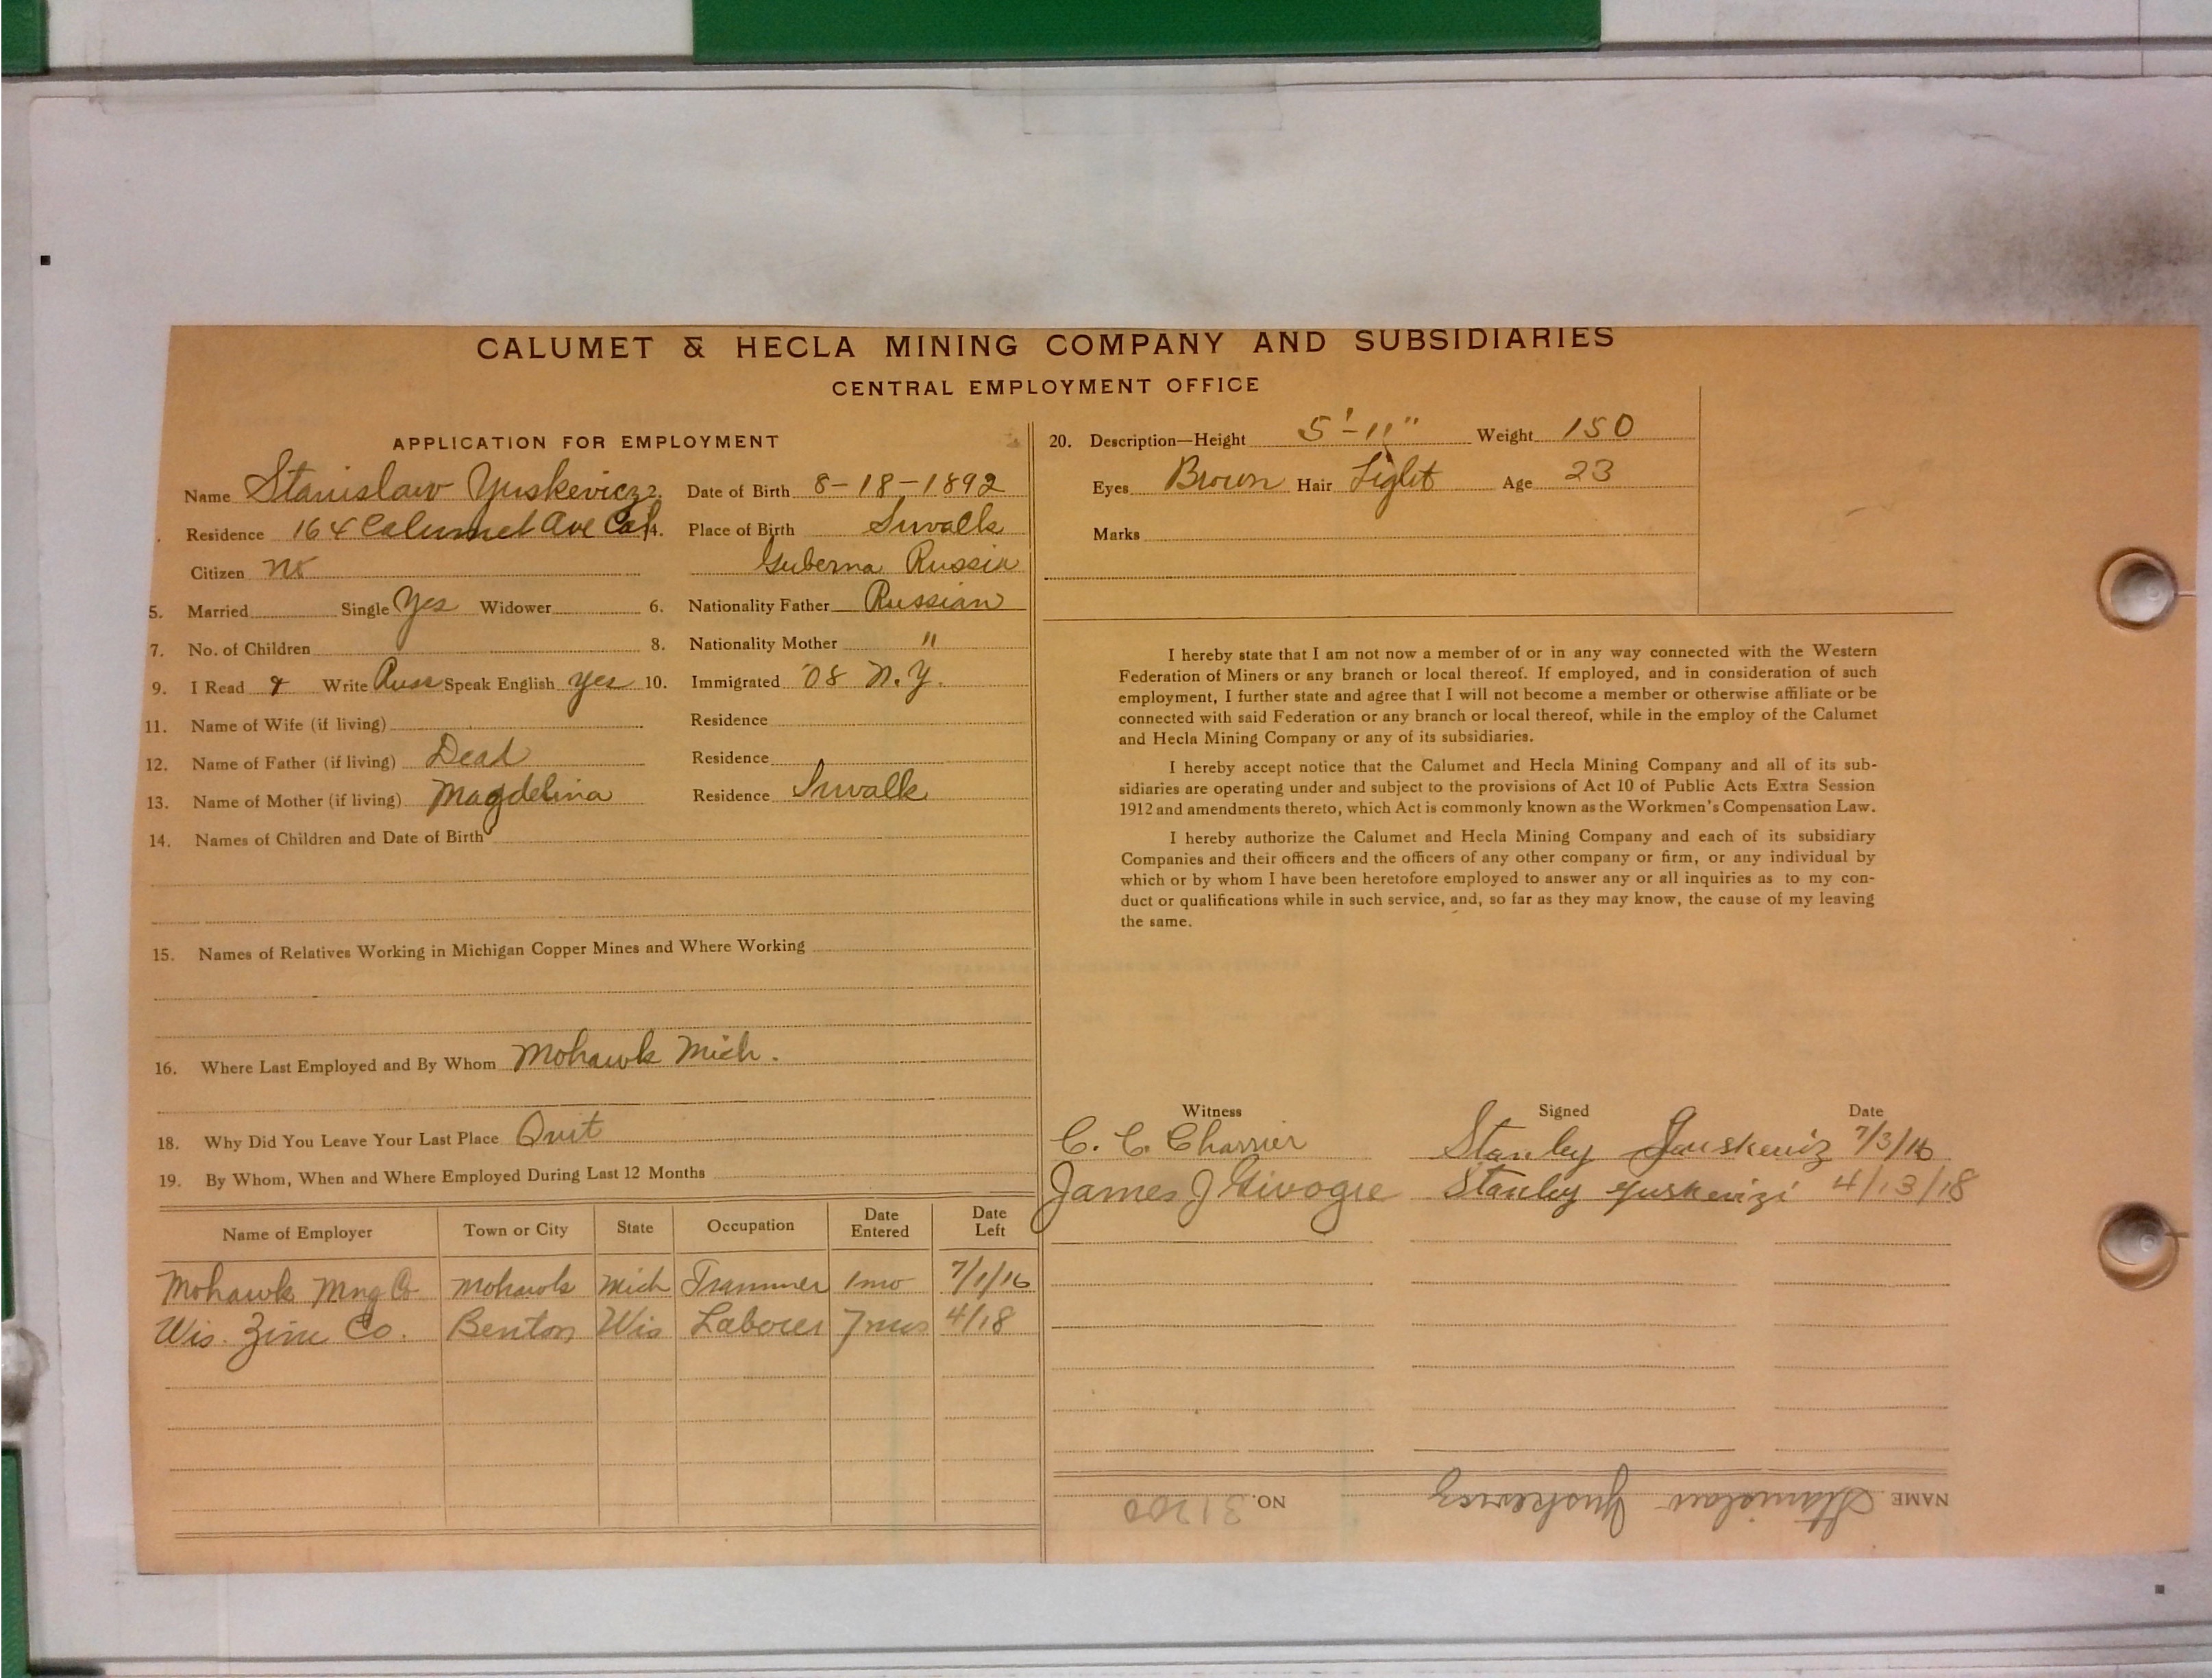 CALUMET & HECLA MINING COMPANY AND SUBSIDIARIES
CENTRAL EMPLOYMENT OFFICE
APPLICATION FOR EMPLOYMENT
Name Stanislaw Yuskevicz 2. Date of Birth 8-18-1892
Residence 164 Calumet Ave Cal 4. Place of Birth Suwalk
Citizen No Guberna Russia
5. Married Single Yes Widower 6. Nationality Father Russian
7. No. of Children 8. Nationality Mother "
9. I Read & Write Russ Speak English yes 10. Immigrated '08 N.Y.
11. Name of Wife (if living) Residence
12. Name of Father (if living) Dead Residence
13. Name of Mother (if living) Magdelina Residence Suwalk
14. Names of Children and Date of Birth
15. Names of Relatives Working in Michigan Copper Mines and Where Working
16. Where Last Employed and By Whom Mohawk Mich.
18. Why Did You Leave Your Last Place Quit
19. By Whom, When and Where Employed During Last 12 Months
Name of Employer Town or City State Occupation Date Entered Date Left
Mohawk Mng Co Mohawk Mich Trammer 1 mo 7/1/16
Wis. Zinc Co. Benton Wis Laborer 7 mos 4/18
20. Description—Height 5'-11" Weight 150
Eyes Brown Hair Light Age 23
Marks
I hereby state that I am not now a member of or in any way connected with the Western
Federation of Miners or any branch or local thereof. If employed, and in consideration of such
employment, I further state and agree that I will not become a member or otherwise affiliate or be
connected with said Federation or any branch or local thereof, while in the employ of the Calumet
and Hecla Mining Company or any of its subsidiaries.
I hereby accept notice that the Calumet and Hecla Mining Company and all of its sub-
sidiaries are operating under and subject to the provisions of Act 10 of Public Acts Extra Session
1912 and amendments thereto, which Act is commonly known as the Workmen's Compensation Law.
I hereby authorize the Calumet and Hecla Mining Company and each of its subsidiary
Companies and their officers and the officers of any other company or firm, or any individual by
which or by whom I have been heretofore employed to answer any or all inquiries as to my con-
duct or qualifications while in such service, and, so far as they may know, the cause of my leaving
the same.
Witness Signed Date
C. C. Charrier Stanley Juskewiz 7/3/16
James J Givogre Stanley Yuskewizi 4/13/18
NAME Stanislaw Yuskevicz NO. 31200